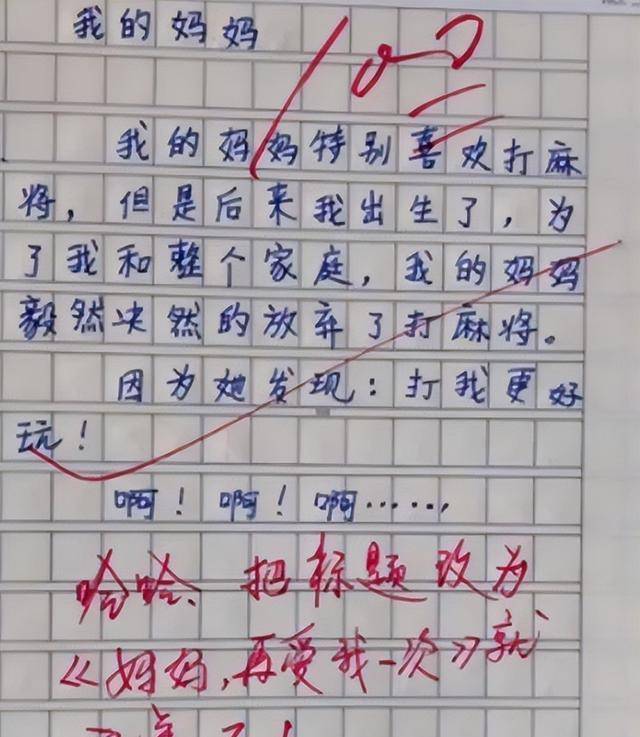 我的妈妈
100
我的妈妈特别喜欢打麻
将，但是后来我出生了，为
了我和整个家庭，我的妈妈
毅然决然的放弃了打麻将。
因为她发现：打我更好
玩！
啊！啊！啊……
哈哈、把标题改为
《妈妈，再爱我一次》就